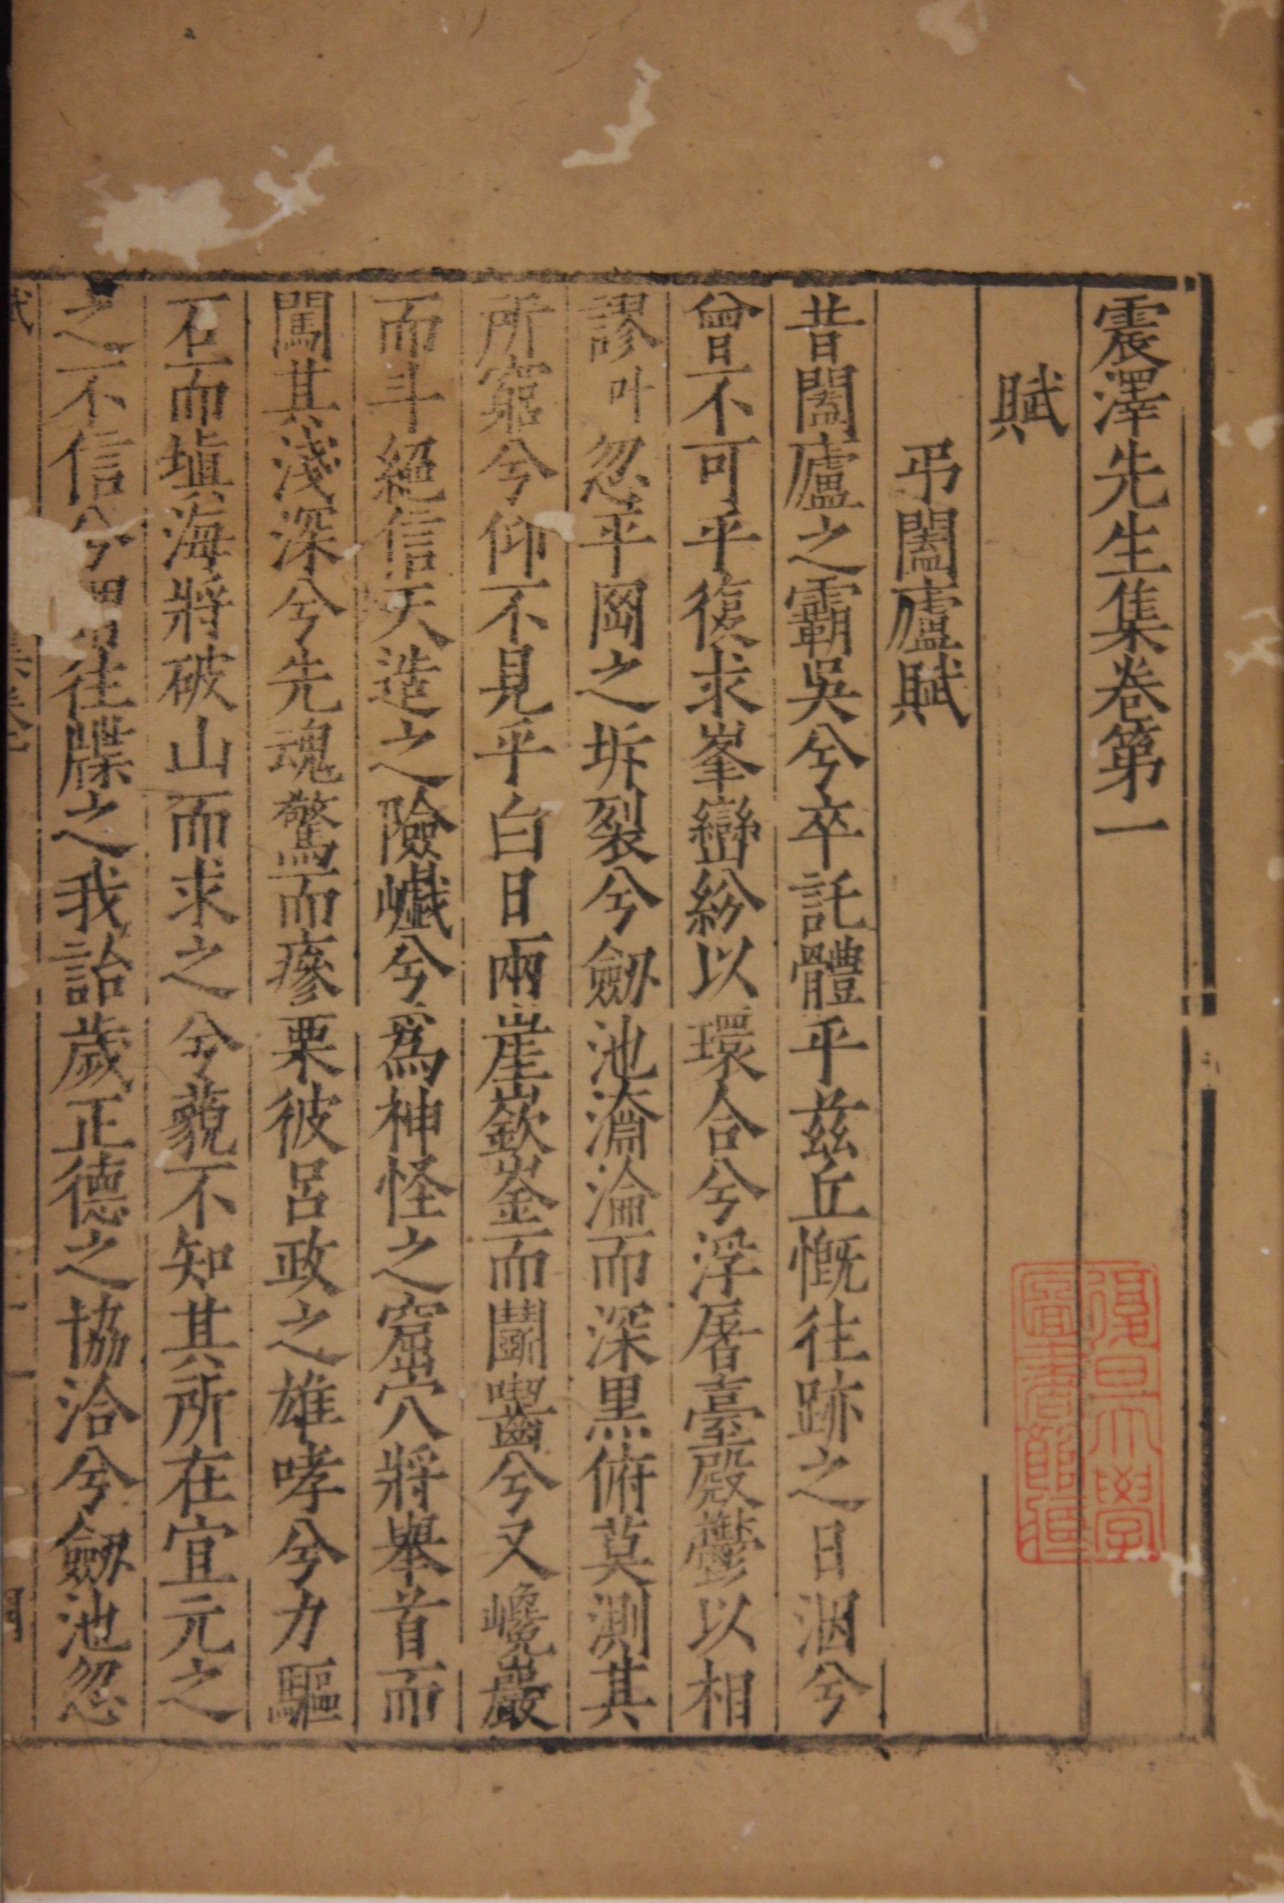 震澤先生集卷第一
賦
弔闔廬賦
昔闔廬之霸吳兮卒託體乎茲丘慨往跡之日湮兮
曾不可乎復求峯巒紛以環合兮浮屠臺殿鬱以相
謬叶忽平岡之坼裂兮劒池淵淪而深黑俯莫測其
所窮兮仰不見乎白日兩崖嶔崟而鬭齧兮又巉巖
而斗絕信天造之險巇兮爲神怪之窟穴將舉首而
闖其淺深兮先魂驚而瘮栗彼呂政之雄哮兮力驅
石而塡海將破山而求之兮藐不知其所在宜元之
之不信兮往牒之我詒歲正德之協洽兮劒池忽
復旦大學圖書館進